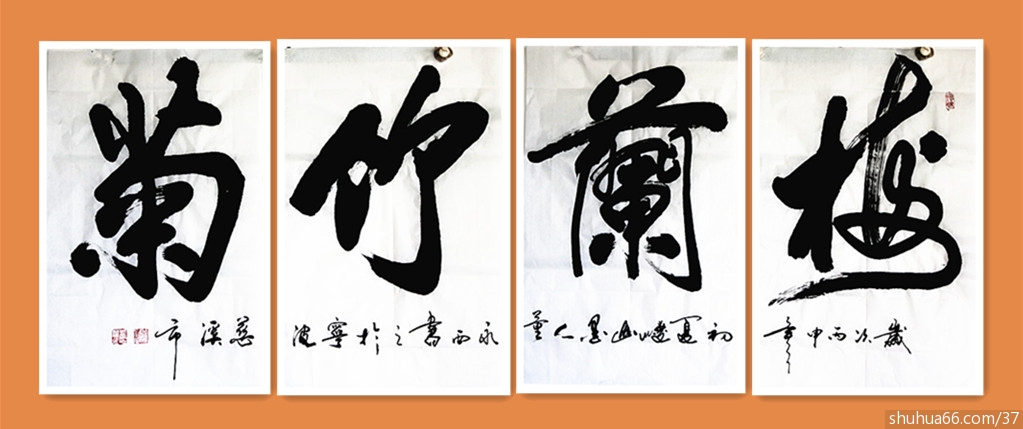 梅蘭竹菊
歲次丙申年
初夏幽墨人董
永西書之於寧波
慈溪市
shuhua66.com/37